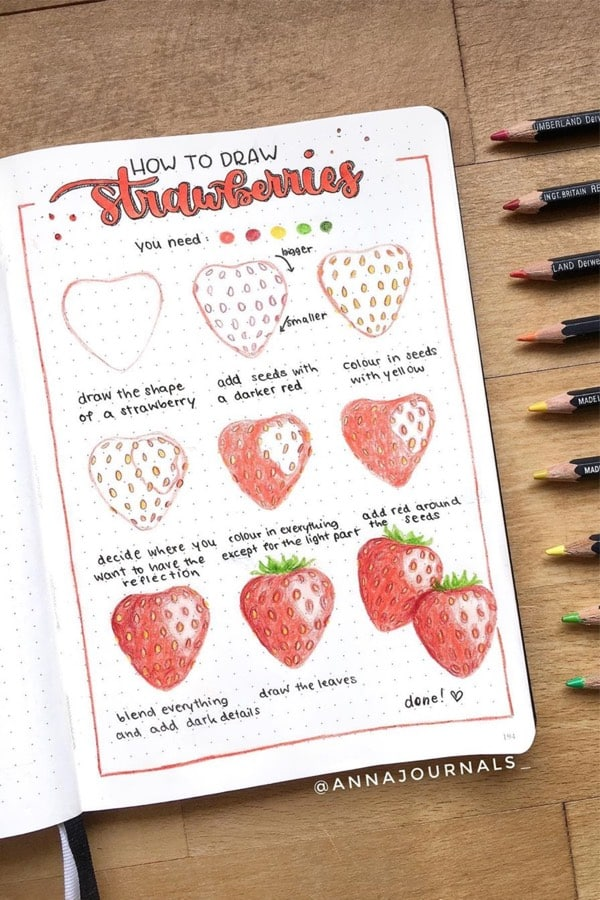 HOW TO DRAW
strawberries
you need:
bigger
smaller
draw the shape
of a strawberry
add seeds with
a darker red
colour in seeds
with yellow
decide where you
want to have the
reflection
colour in everything
except for the light part
add red around
the seeds
blend everything
and add dark details
draw the leaves
done! ♡
184
@ANNAJOURNALS_
UMBERLAND Derw
INGT. BRITAIN RE
LAND Derwe
MADE I
MADE